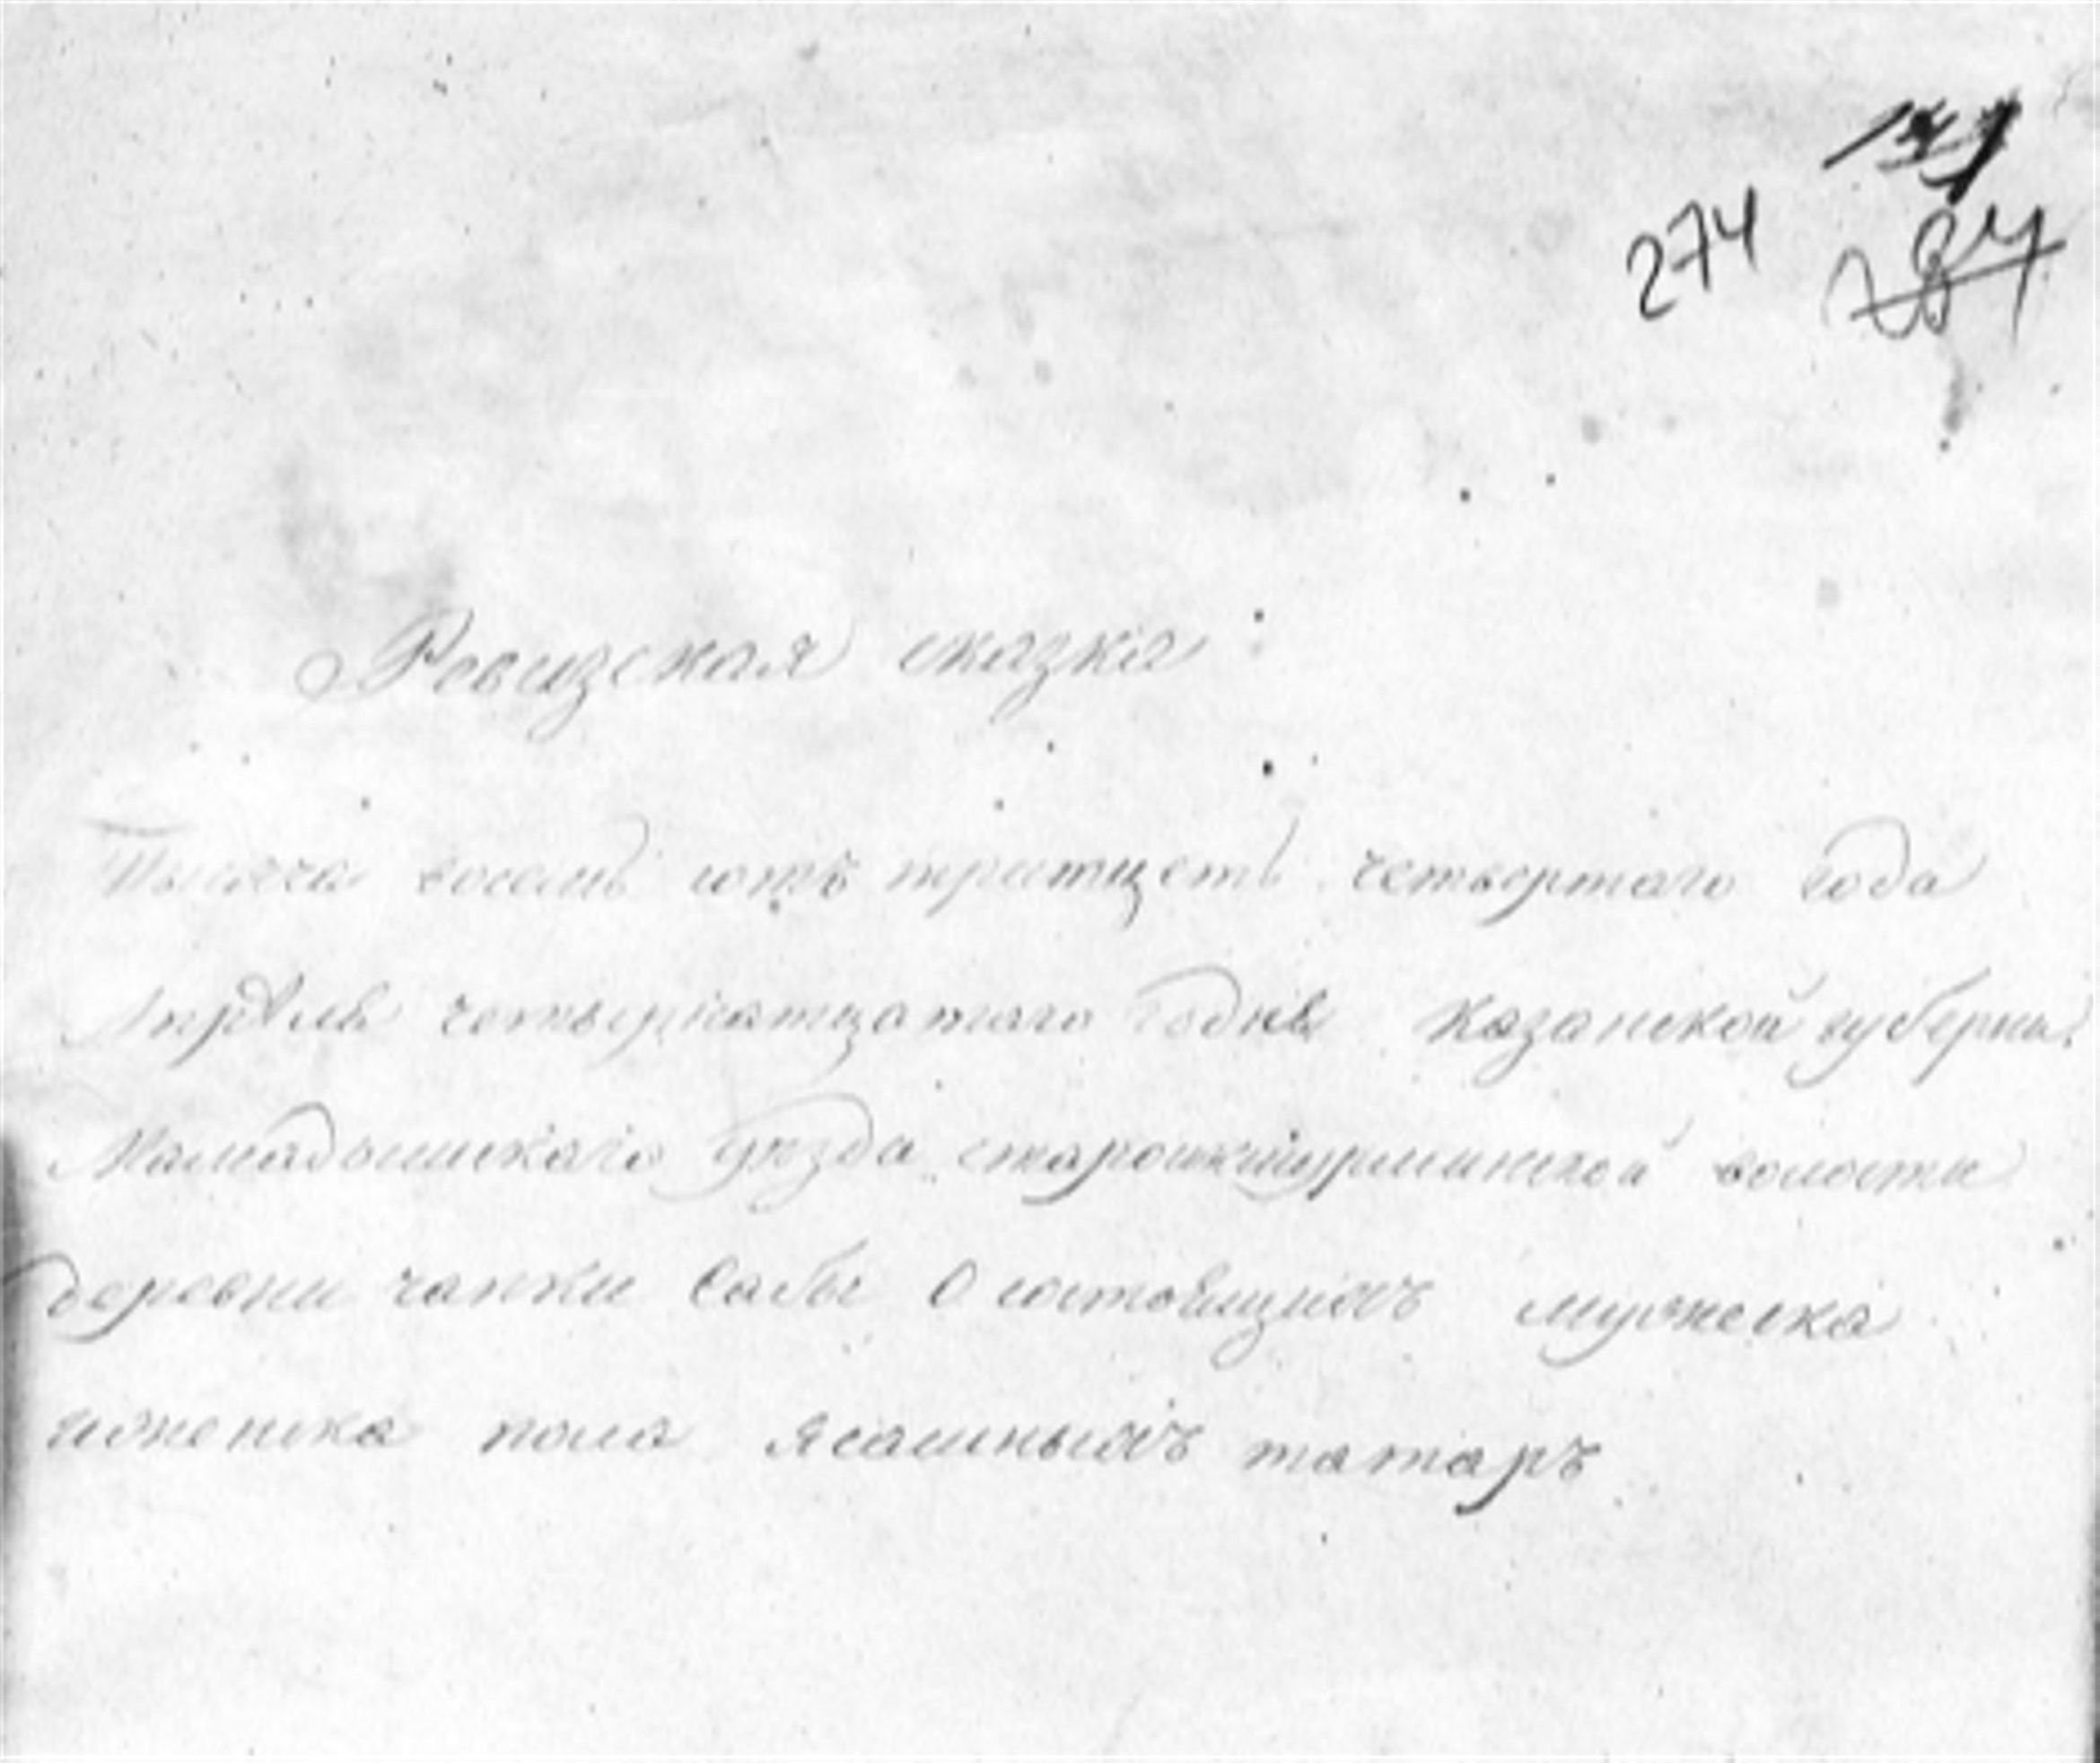 274
Ревизская сказка
Тысяча восемь сотъ тритцеть четвертаго года
Апрѣля четвернатцатаго дня Казанской губерни
Мамадышскаго уѣзда старошкиурминской волости
деревни чапки Сабы О состоящихъ мужеска
иженска пола ясашныхъ татаръ